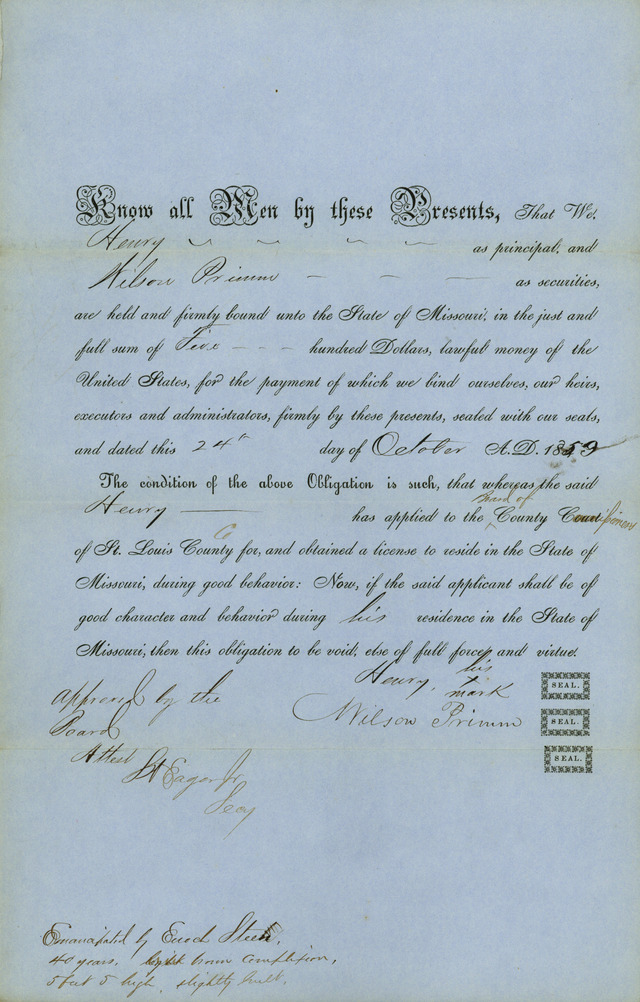 Know all Men by these Presents, That We,
Henry as principal, and
Wilson Primm as securities,
are held and firmly bound unto the State of Missouri, in the just and
full sum of Five hundred Dollars, lawful money of the
United States, for the payment of which we bind ourselves, our heirs,
executors and administrators, firmly by these presents, sealed with our seals,
and dated this 24th day of October A.D. 1859
The condition of the above Obligation is such, that whereas the said
Board of
Henry has applied to the County
of St. Louis County for, and obtained a license to reside in the State of
Missouri, during good behavior: Now, if the said applicant shall be of
good character and behavior during his residence in the State of
Missouri, then this obligation to be void, else of full force and virtue.
Henry, his mark SEAL.
Approved by the
Wilson Primm SEAL.
Board
Attest SEAL.
Eager Jr
Secy
Emancipated by Enoch Steen,
40 years, light brown complexion,
5 feet 5 high, slightly built.